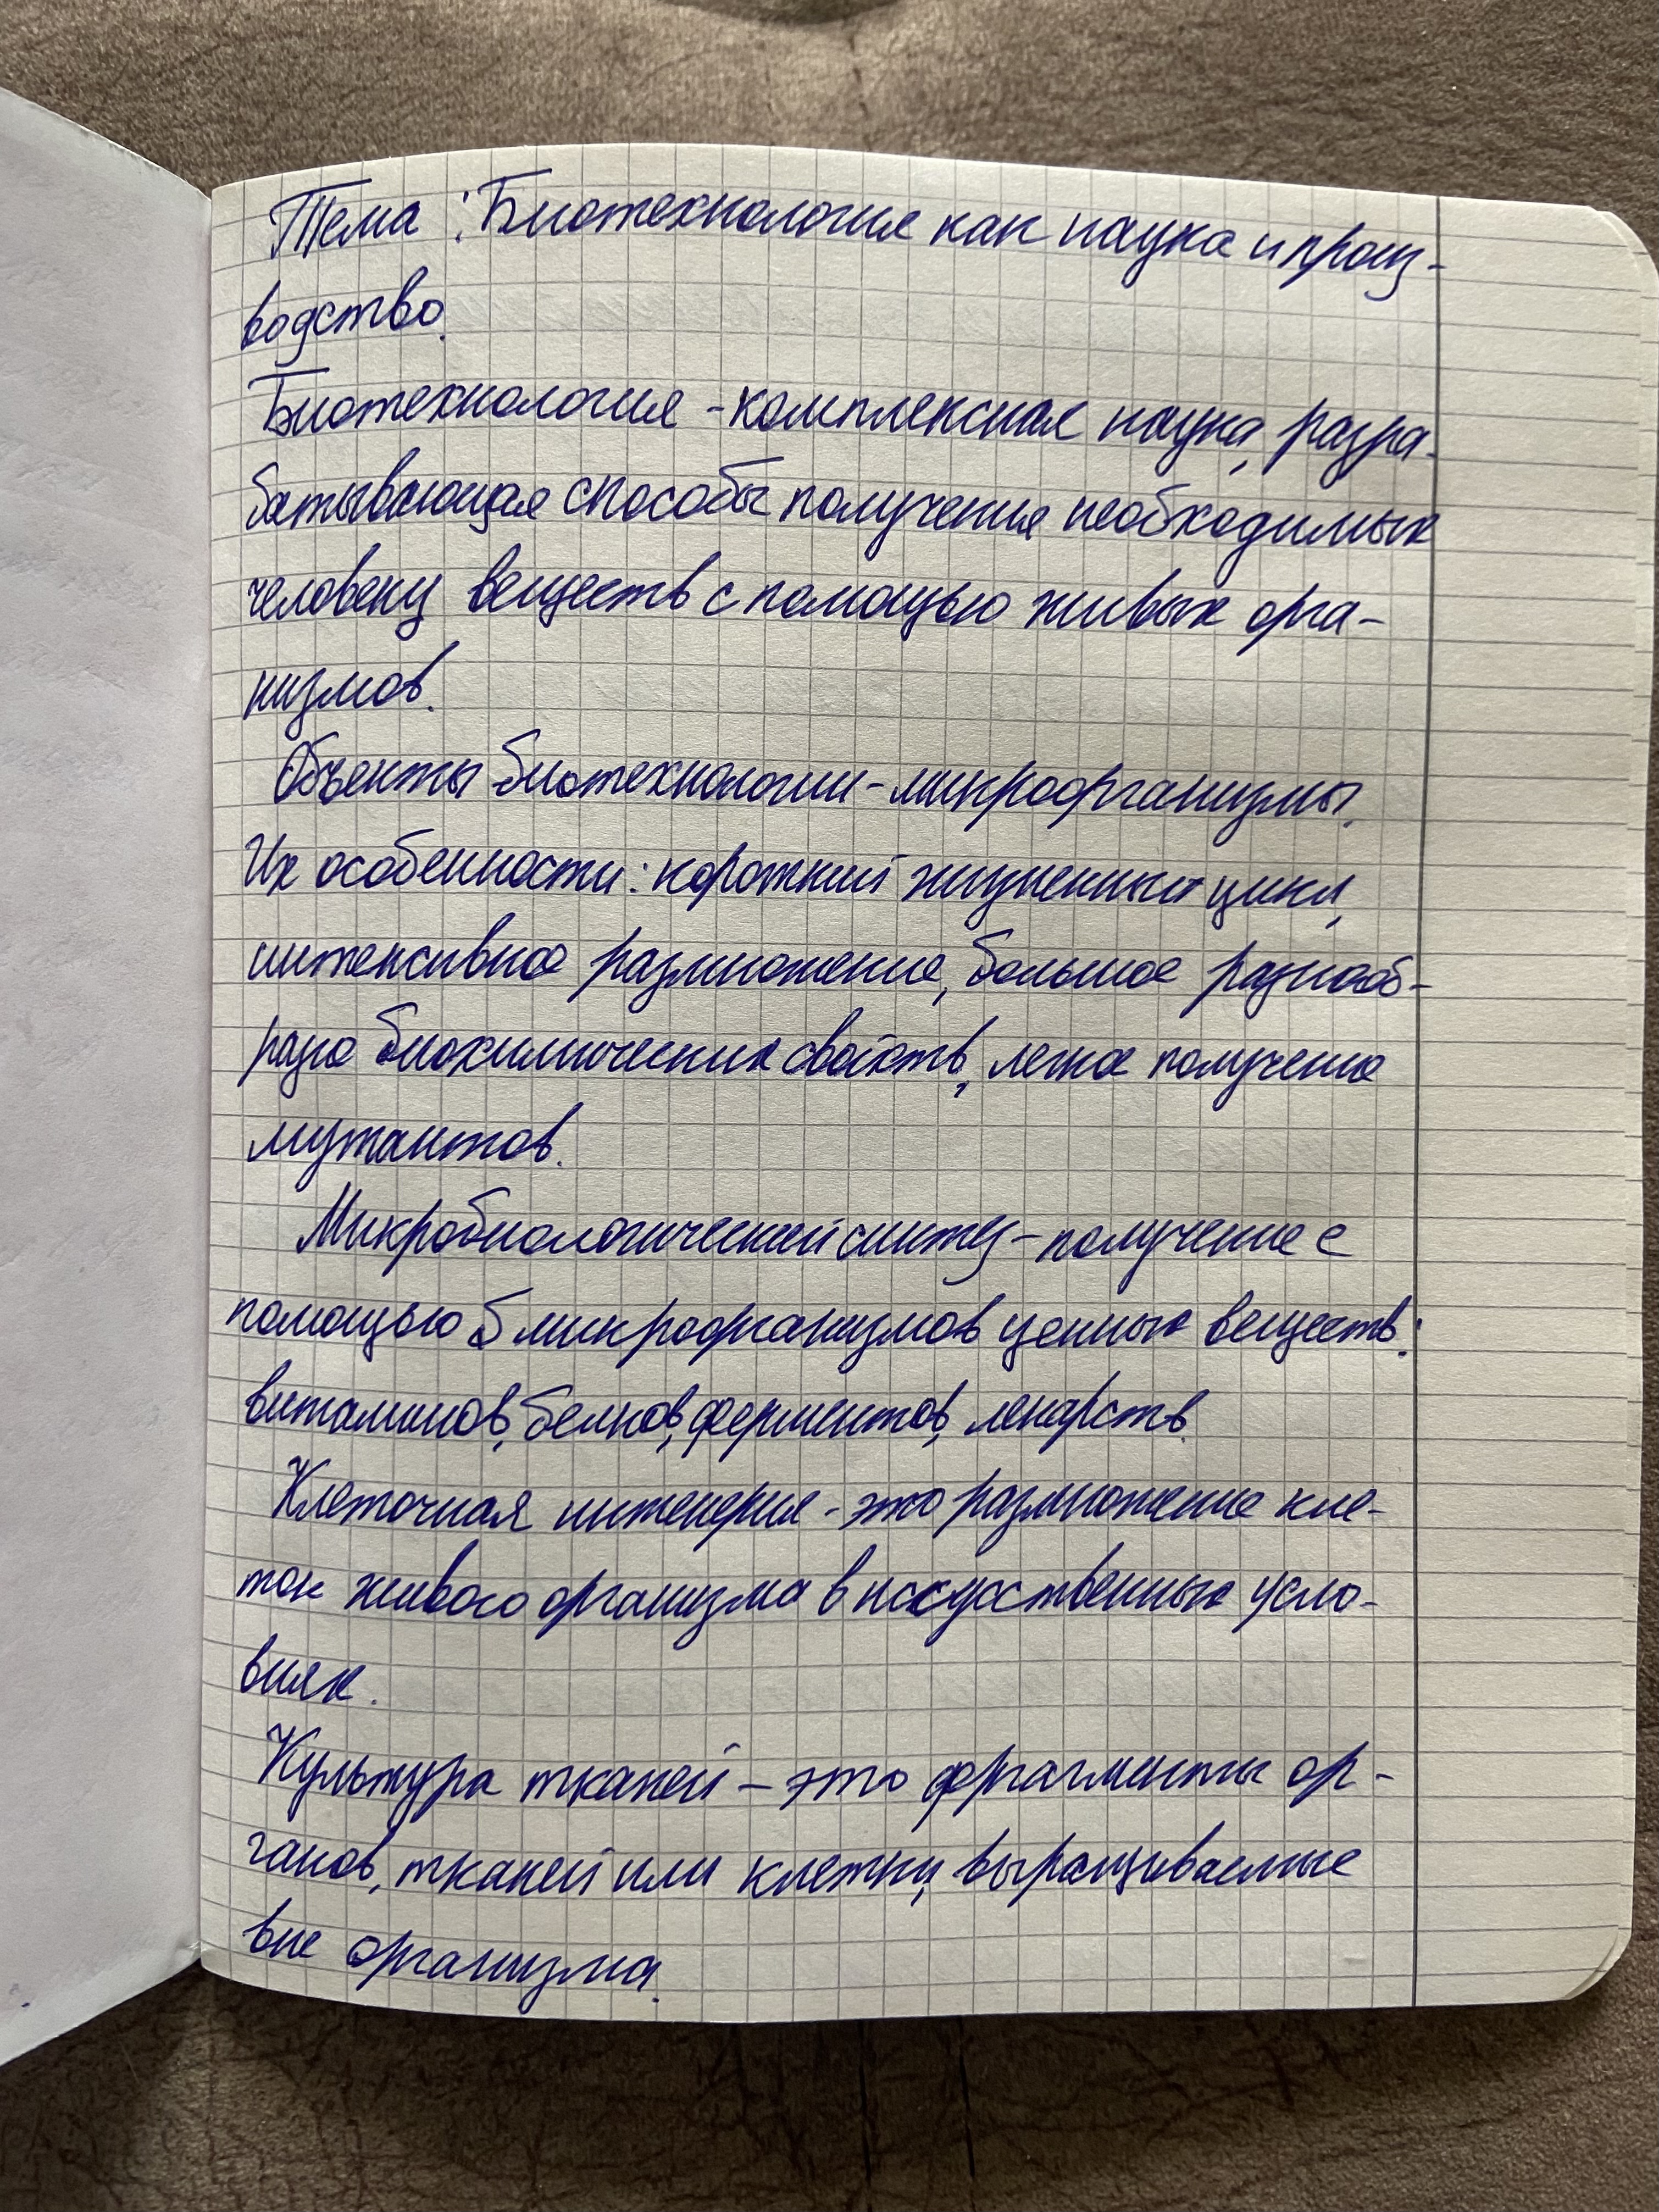 Тема: Биотехнология как наука и произ-
водство.
Биотехнология - комплексная наука, разра-
батывающая способы получения необходимых
человеку веществ с помощью живых орга-
низмов.
Объекты биотехнологии - микроорганизмы.
Их особенности: короткий жизненный цикл,
интенсивное размножение, большое разнооб-
разие биохимических свойств, легкое получение
мутантов.
Микробиологический синтез - получение с
помощью микроорганизмов ценных веществ:
витаминов, белков, ферментов, лекарств.
Клеточная инженерия - это размножение кле-
ток живого организма в искусственных усло-
виях.
Культура тканей - это фрагменты ор-
ганов, тканей или клетки, выращиваемые
вне организма.